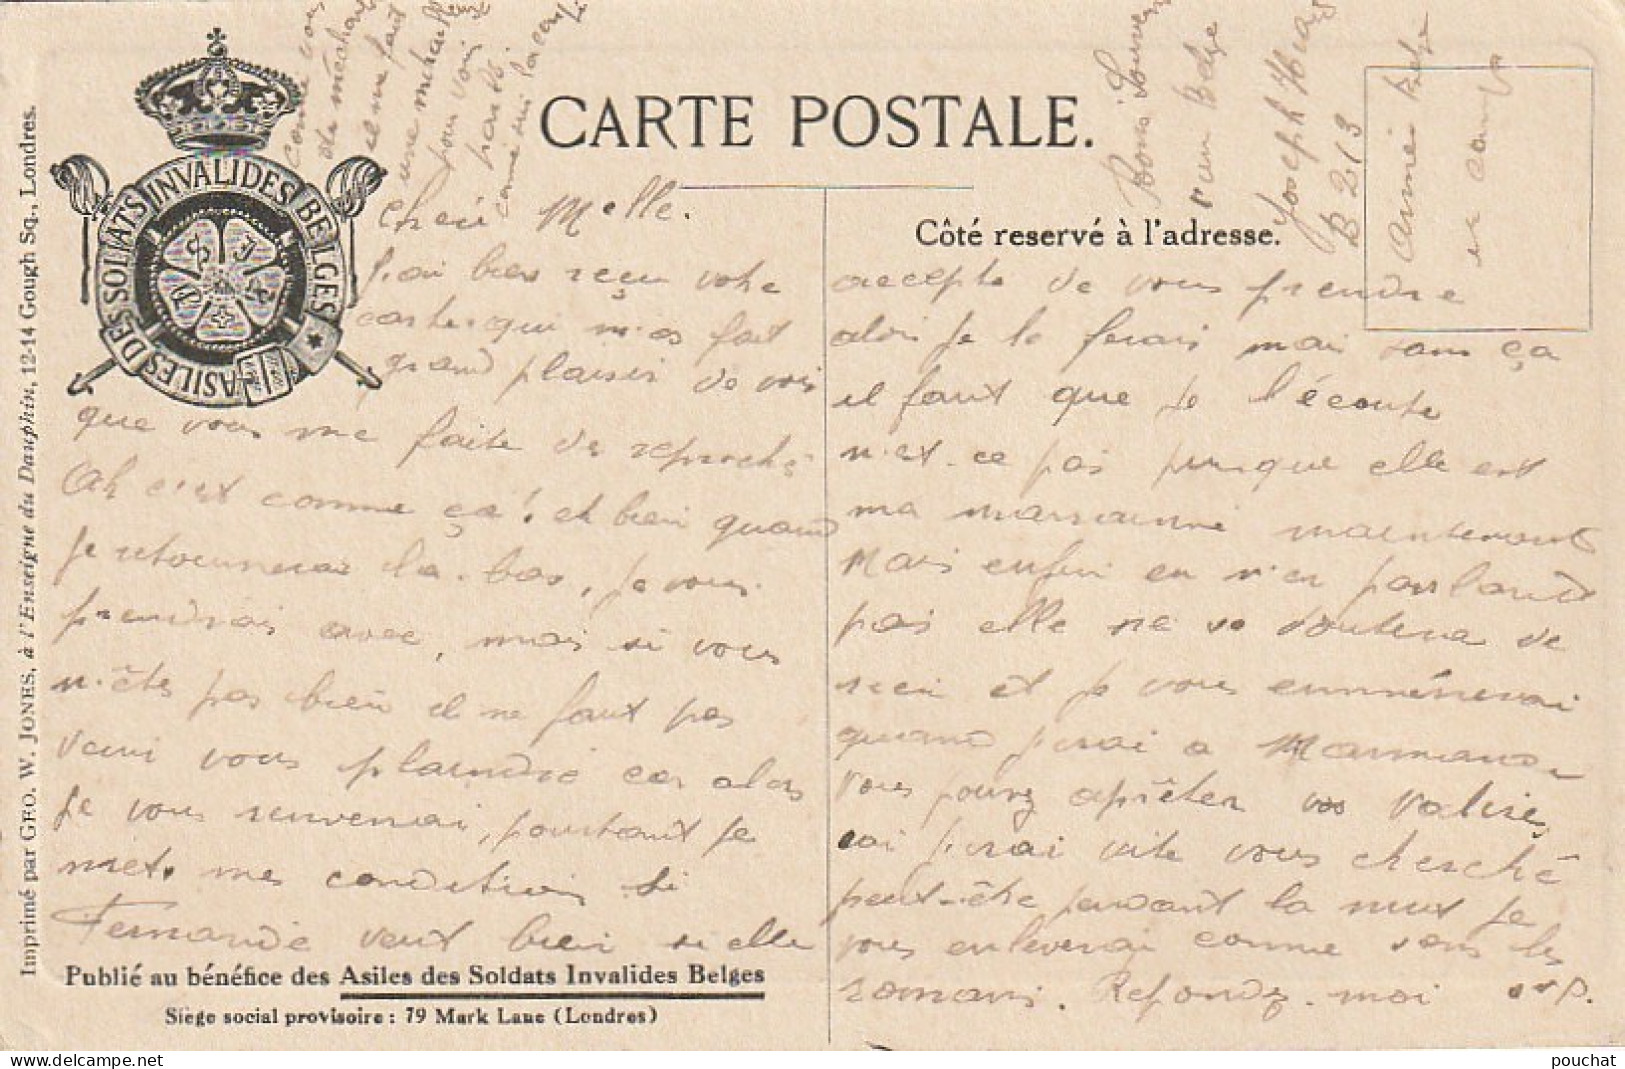 CARTE POSTALE.
Côté reservé à l'adresse.
ASILES DES SOLDATS INVALIDES BELGES
Imprimé par GEO. W. JONES, à l'Enseigne du Dauphin, 12-14 Gough Sq., Londres.
Cheri Melle.
J'ai bien reçu votre
carte qui m'as fait
grand plaisir de voir
que vous me faite de reproche
Ah c'est comme ça! et bien quand
je retournerai la-bas, je vous
prendrais avec, mais si vous
n'êtes pas bien il ne faut pas
venir vous plaindre car alors
je vous renverrai, pourtant je
met mes conditions si
Fernande veut bien si elle
accepte de vous prendre
alors je le ferais mais sans ça
il faut que je l'écoute
n'est-ce pas puisque elle est
ma marraine maintenant
Mais enfin en n'en parlant
pas elle ne se doutera de
rien et je vous emmènerai
quand j'irai a Marmande
vous pouvez aprêter vos valises,
j'irai vite vous cherché
peut-être pendant la nuit je
vous enleverai comme dans les
romans. Repondez-moi svp.
Bons Souvenir
d'un Belge
Joseph
B 213
Armée Belge
en camp
comme vous
de méchant
il me faut
une méchante
pour voir
comme sur
Publié au bénéfice des Asiles des Soldats Invalides Belges
Siège social provisoire : 79 Mark Lane (Londres)
pouchat